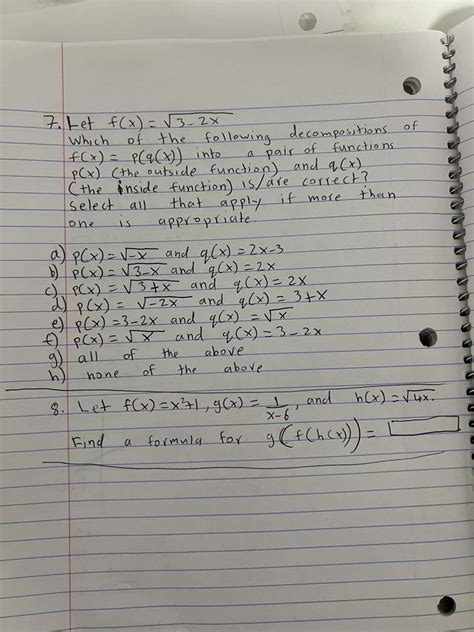 7. Let f(x) = √3-2x
Which of the following decompositions of
f(x) = p(q(x)) into a pair of functions
p(x) (the outside function) and q(x)
(the inside function) is/are correct?
Select all that apply if more than
one is appropriate
a) p(x) = √-x and q(x) = 2x-3
b) p(x) = √3-x and q(x) = 2x
c) p(x) = √3+x and q(x) = 2x
d) p(x) = √-2x and q(x) = 3+x
e) p(x) = 3-2x and q(x) = √x
f) p(x) = √x and q(x) = 3-2x
g) all of the above
h) none of the above
8. Let f(x) = x²+1, g(x) = 1/x-6, and h(x) = √4x.
Find a formula for g(f(h(x))) =